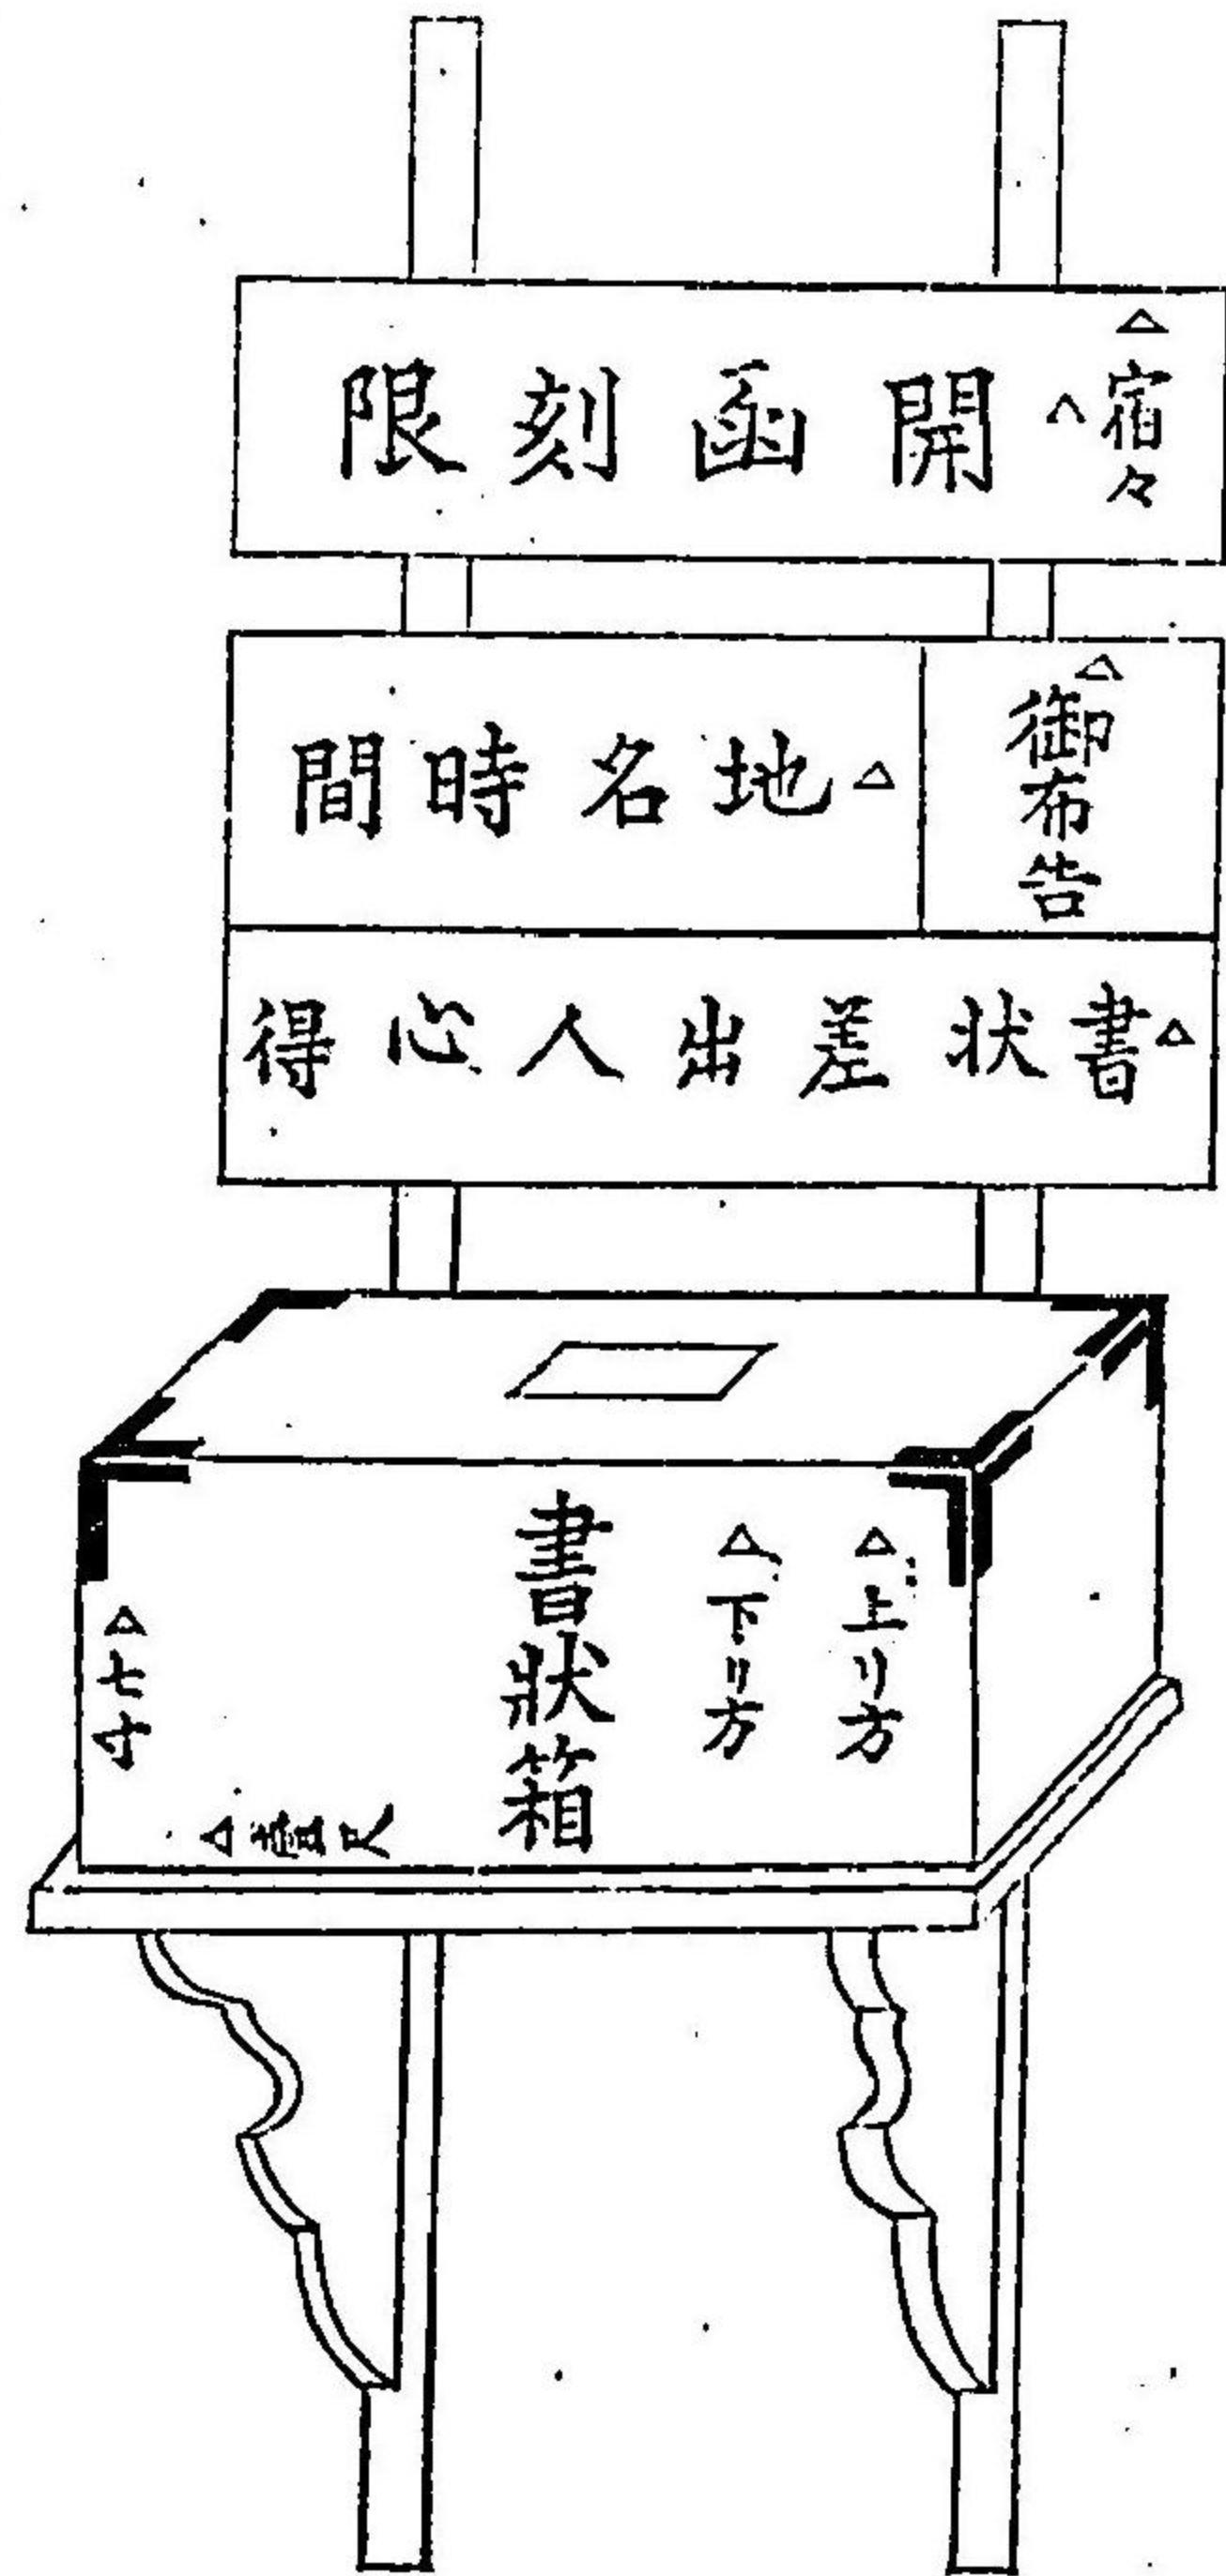 △宿々
△開函刻限
△御布告
△地名時間
△書状差出人心得
△上リ方
△下リ方
書狀箱
△七寸
△壹尺